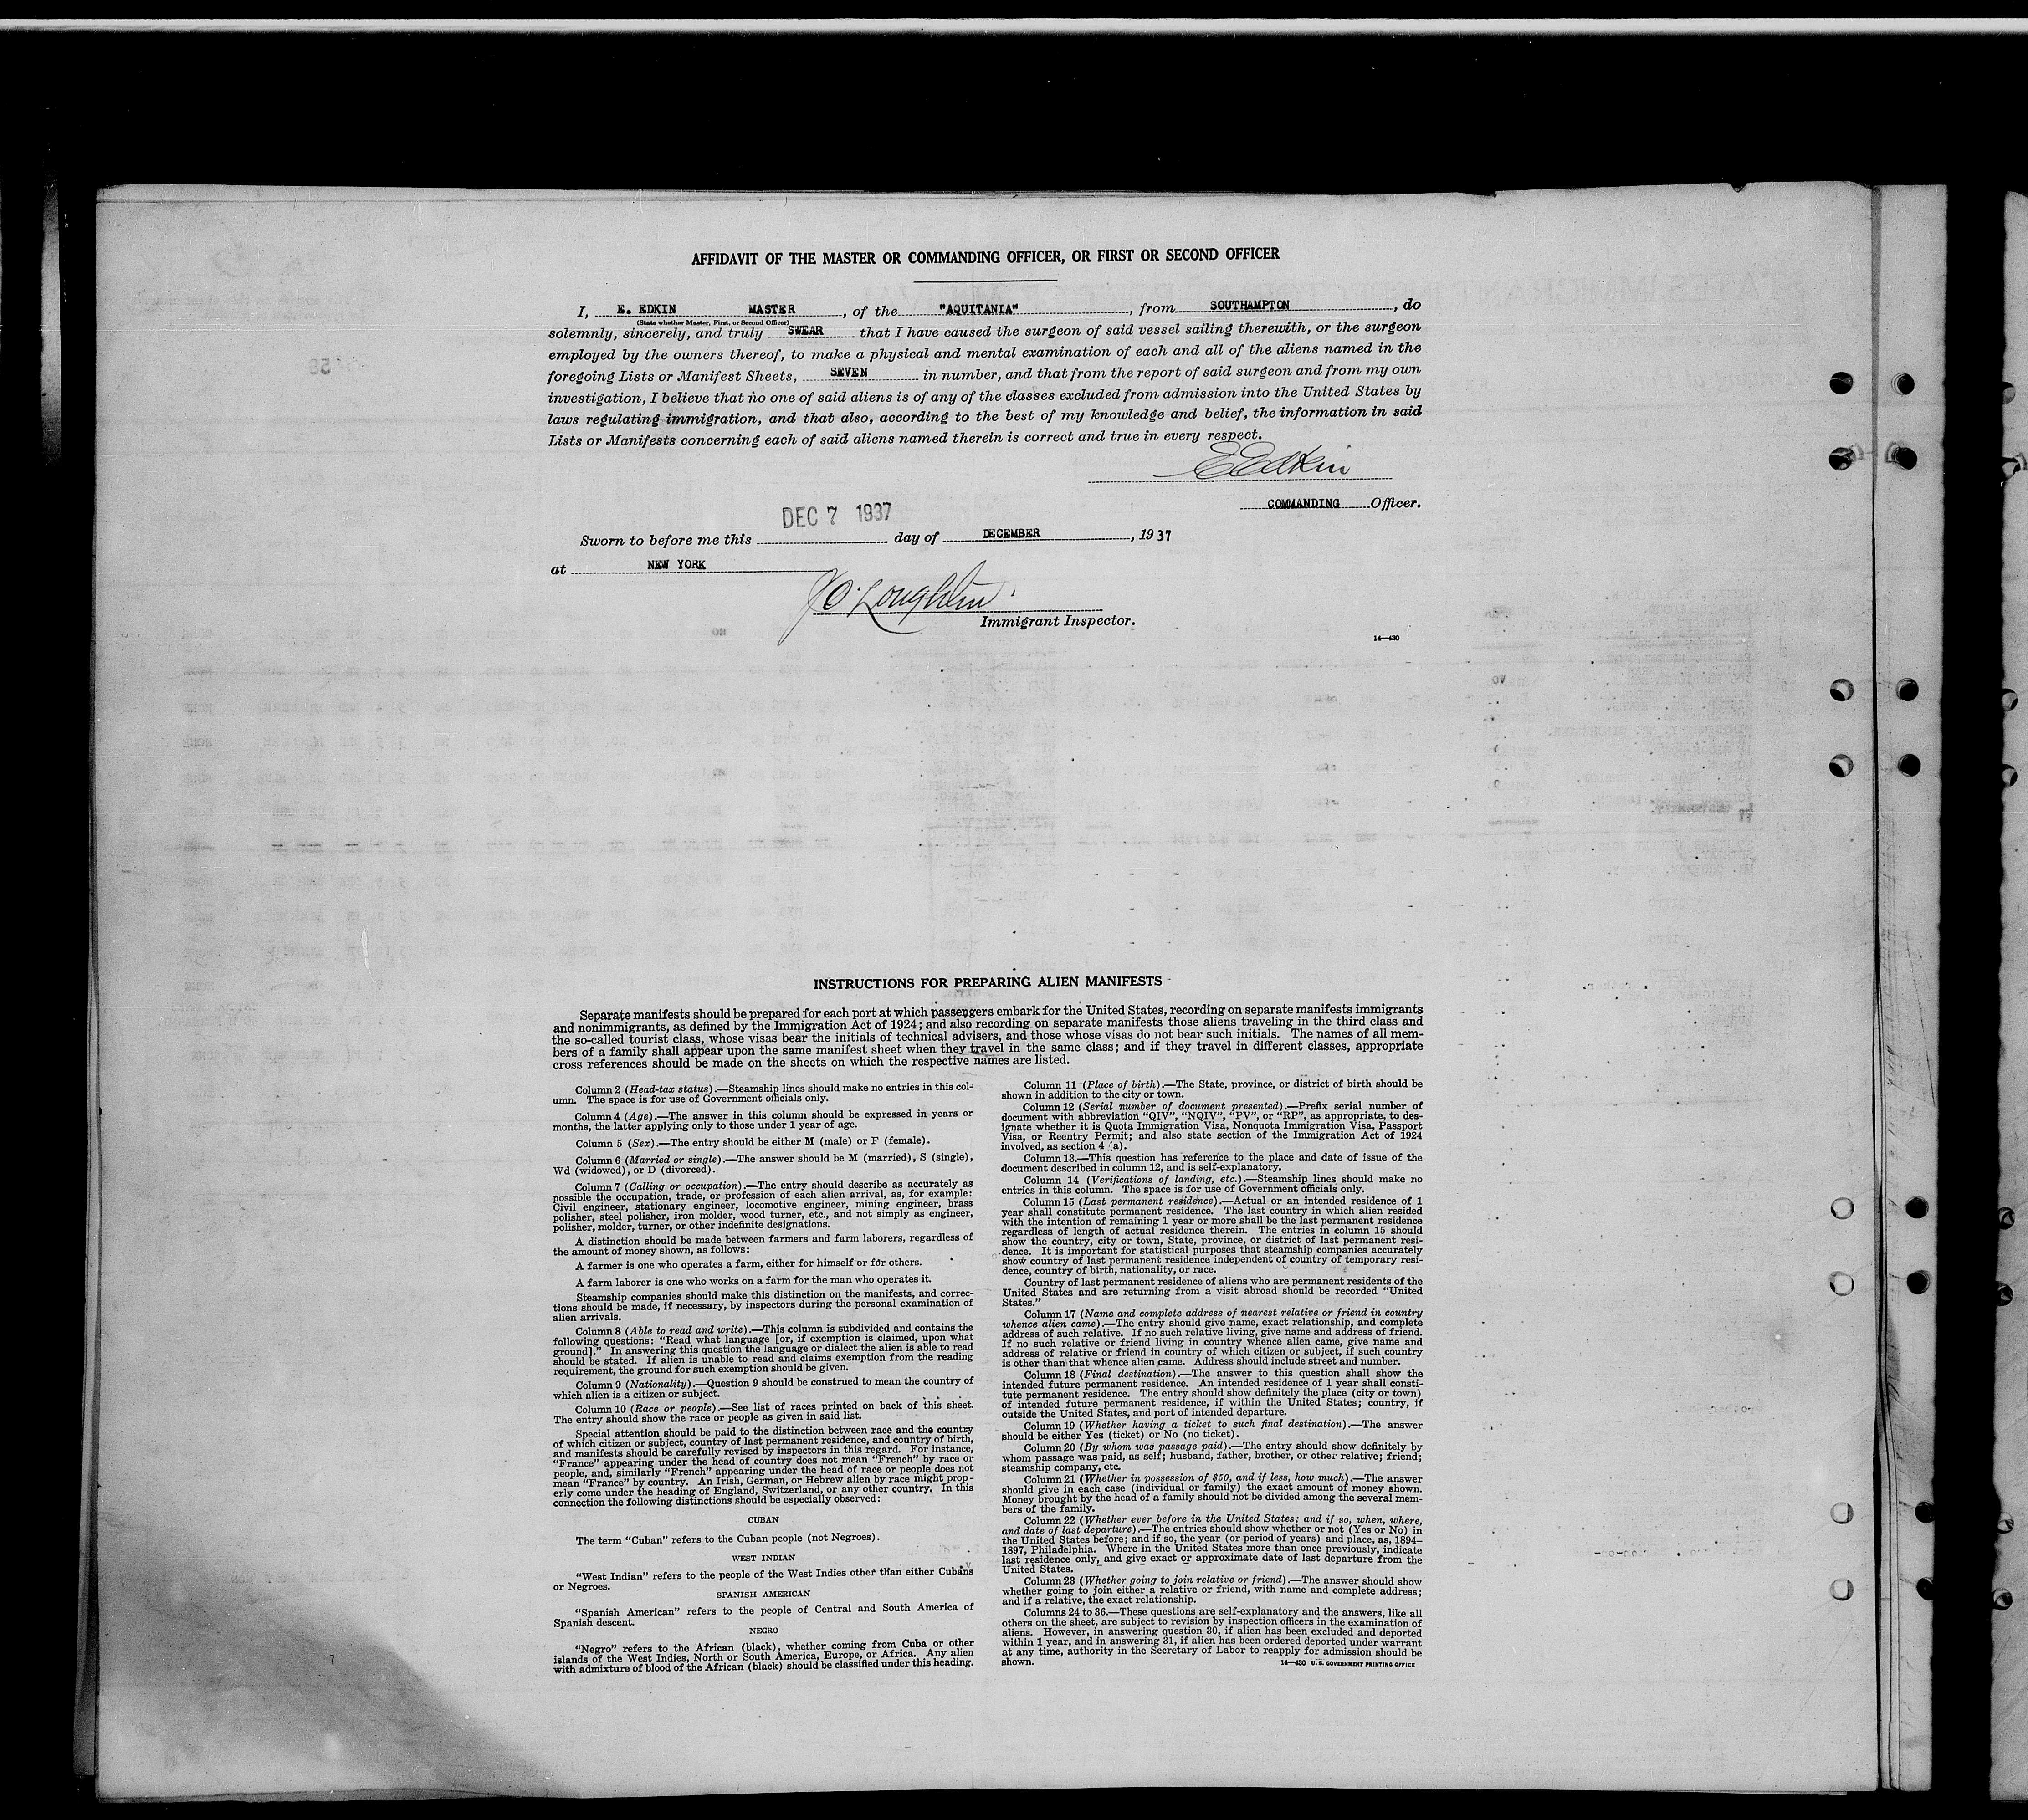 AFFIDAVIT OF THE MASTER OR COMMANDING OFFICER, OR FIRST OR SECOND OFFICER
I, E. EDKIN MASTER, of the "AQUITANIA", from SOUTHAMPTON, do
(State whether Master, First, or Second Officer)
solemnly, sincerely, and truly SWEAR that I have caused the surgeon of said vessel sailing therewith, or the surgeon
employed by the owners thereof, to make a physical and mental examination of each and all of the aliens named in the
foregoing Lists or Manifest Sheets, SEVEN in number, and that from the report of said surgeon and from my own
investigation, I believe that no one of said aliens is of any of the classes excluded from admission into the United States by
laws regulating immigration, and that also, according to the best of my knowledge and belief, the information in said
Lists or Manifests concerning each of said aliens named therein is correct and true in every respect.
E Edkin
COMMANDING Officer.
DEC 7 1937
Sworn to before me this day of DECEMBER, 1937
at NEW YORK
J O'Loughlin
Immigrant Inspector.
14—430
INSTRUCTIONS FOR PREPARING ALIEN MANIFESTS
Separate manifests should be prepared for each port at which passengers embark for the United States, recording on separate manifests immigrants
and nonimmigrants, as defined by the Immigration Act of 1924; and also recording on separate manifests those aliens traveling in the third class and
the so-called tourist class, whose visas bear the initials of technical advisers, and those whose visas do not bear such initials. The names of all mem-
bers of a family shall appear upon the same manifest sheet when they travel in the same class; and if they travel in different classes, appropriate
cross references should be made on the sheets on which the respective names are listed.
Column 2 (Head-tax status).—Steamship lines should make no entries in this col-
umn. The space is for use of Government officials only.
Column 4 (Age).—The answer in this column should be expressed in years or
months, the latter applying only to those under 1 year of age.
Column 5 (Sex).—The entry should be either M (male) or F (female).
Column 6 (Married or single).—The answer should be M (married), S (single),
Wd (widowed), or D (divorced).
Column 7 (Calling or occupation).—The entry should describe as accurately as
possible the occupation, trade, or profession of each alien arrival, as, for example:
Civil engineer, stationary engineer, locomotive engineer, mining engineer, brass
polisher, steel polisher, iron molder, wood turner, etc., and not simply as engineer,
polisher, molder, turner, or other indefinite designations.
A distinction should be made between farmers and farm laborers, regardless of
the amount of money shown, as follows:
A farmer is one who operates a farm, either for himself or for others.
A farm laborer is one who works on a farm for the man who operates it.
Steamship companies should make this distinction on the manifests, and correc-
tions should be made, if necessary, by inspectors during the personal examination of
alien arrivals.
Column 8 (Able to read and write).—This column is subdivided and contains the
following questions: "Read what language [or, if exemption is claimed, upon what
ground]." In answering this question the language or dialect the alien is able to read
should be stated. If alien is unable to read and claims exemption from the reading
requirement, the ground for such exemption should be given.
Column 9 (Nationality).—Question 9 should be construed to mean the country of
which alien is a citizen or subject.
Column 10 (Race or people).—See list of races printed on back of this sheet.
The entry should show the race or people as given in said list.
Special attention should be paid to the distinction between race and the country
of which citizen or subject, country of last permanent residence, and country of birth,
and manifests should be carefully revised by inspectors in this regard. For instance,
"France" appearing under the head of country does not mean "French" by race or
people, and, similarly "French" appearing under the head of race or people does not
mean "France" by country. An Irish, German, or Hebrew alien by race might prop-
erly come under the heading of England, Switzerland, or any other country. In this
connection the following distinctions should be especially observed:
CUBAN
The term "Cuban" refers to the Cuban people (not Negroes).
WEST INDIAN
"West Indian" refers to the people of the West Indies other than either Cubans
or Negroes.
SPANISH AMERICAN
"Spanish American" refers to the people of Central and South America of
Spanish descent.
NEGRO
"Negro" refers to the African (black), whether coming from Cuba or other
islands of the West Indies, North or South America, Europe, or Africa. Any alien
with admixture of blood of the African (black) should be classified under this heading.
Column 11 (Place of birth).—The State, province, or district of birth should be
shown in addition to the city or town.
Column 12 (Serial number of document presented).—Prefix serial number of
document with abbreviation "QIV", "NQIV", "PV", or "RP", as appropriate, to des-
ignate whether it is Quota Immigration Visa, Nonquota Immigration Visa, Passport
Visa, or Reentry Permit; and also state section of the Immigration Act of 1924
involved, as section 4 (a).
Column 13.—This question has reference to the place and date of issue of the
document described in column 12, and is self-explanatory.
Column 14 (Verifications of landing, etc.).—Steamship lines should make no
entries in this column. The space is for use of Government officials only.
Column 15 (Last permanent residence).—Actual or an intended residence of 1
year shall constitute permanent residence. The last country in which alien resided
with the intention of remaining 1 year or more shall be the last permanent residence
regardless of length of actual residence therein. The entries in column 15 should
show the country, city or town, State, province, or district of last permanent resi-
dence. It is important for statistical purposes that steamship companies accurately
show country of last permanent residence independent of country of temporary resi-
dence, country of birth, nationality, or race.
Country of last permanent residence of aliens who are permanent residents of the
United States and are returning from a visit abroad should be recorded "United
States."
Column 17 (Name and complete address of nearest relative or friend in country
whence alien came).—The entry should give name, exact relationship, and complete
address of such relative. If no such relative living, give name and address of friend.
If no such relative or friend living in country whence alien came, give name and
address of relative or friend in country of which citizen or subject, if such country
is other than that whence alien came. Address should include street and number.
Column 18 (Final destination).—The answer to this question shall show the
intended future permanent residence. An intended residence of 1 year shall consti-
tute permanent residence. The entry should show definitely the place (city or town)
of intended future permanent residence, if within the United States; country, if
outside the United States, and port of intended departure.
Column 19 (Whether having a ticket to such final destination).—The answer
should be either Yes (ticket) or No (no ticket).
Column 20 (By whom was passage paid).—The entry should show definitely by
whom passage was paid, as self; husband, father, brother, or other relative; friend;
steamship company, etc.
Column 21 (Whether in possession of $50, and if less, how much).—The answer
should give in each case (individual or family) the exact amount of money shown.
Money brought by the head of a family should not be divided among the several mem-
bers of the family.
Column 22 (Whether ever before in the United States; and if so, when, where,
and date of last departure).—The entries should show whether or not (Yes or No) in
the United States before; and if so, the year (or period of years) and place, as, 1894–
1897, Philadelphia. Where in the United States more than once previously, indicate
last residence only, and give exact or approximate date of last departure from the
United States.
Column 23 (Whether going to join relative or friend).—The answer should show
whether going to join either a relative or friend, with name and complete address;
and if a relative, the exact relationship.
Columns 24 to 36.—These questions are self-explanatory and the answers, like all
others on the sheet, are subject to revision by inspection officers in the examination of
aliens. However, in answering question 30, if alien has been excluded and deported
within 1 year, and in answering 31, if alien has been ordered deported under warrant
at any time, authority in the Secretary of Labor to reapply for admission should be
shown.
14—430 U. S. GOVERNMENT PRINTING OFFICE